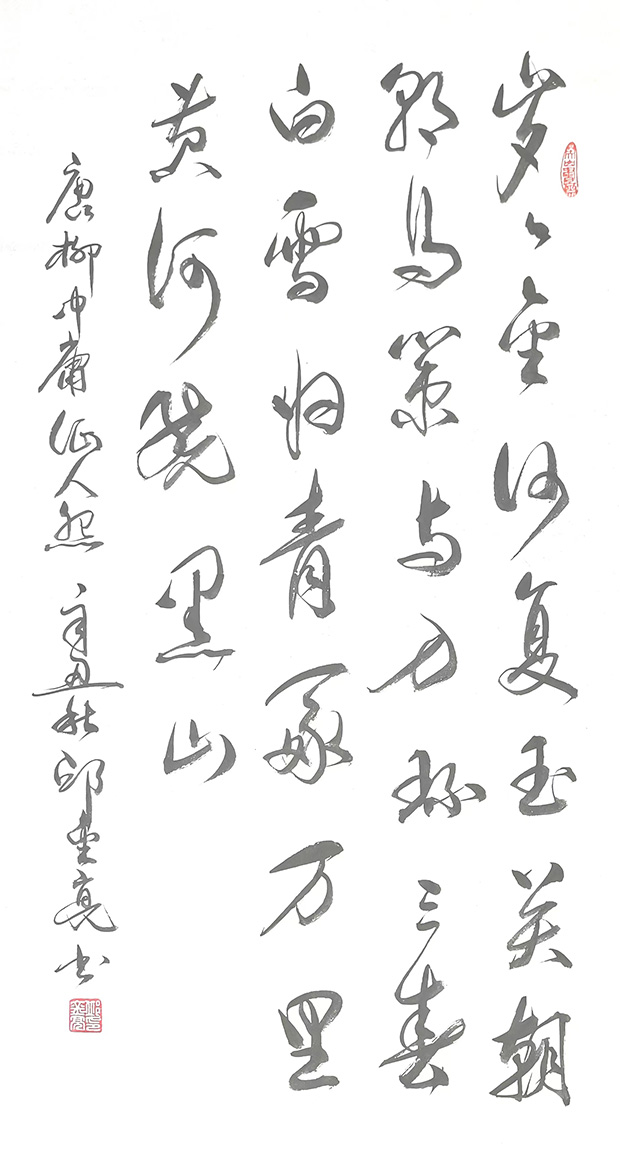 岁々金河复玉关朝
朝马策与刀环三春
白雪归青冢万里
黄河绕黑山
唐柳中庸征人怨 辛丑秋邱金亮书